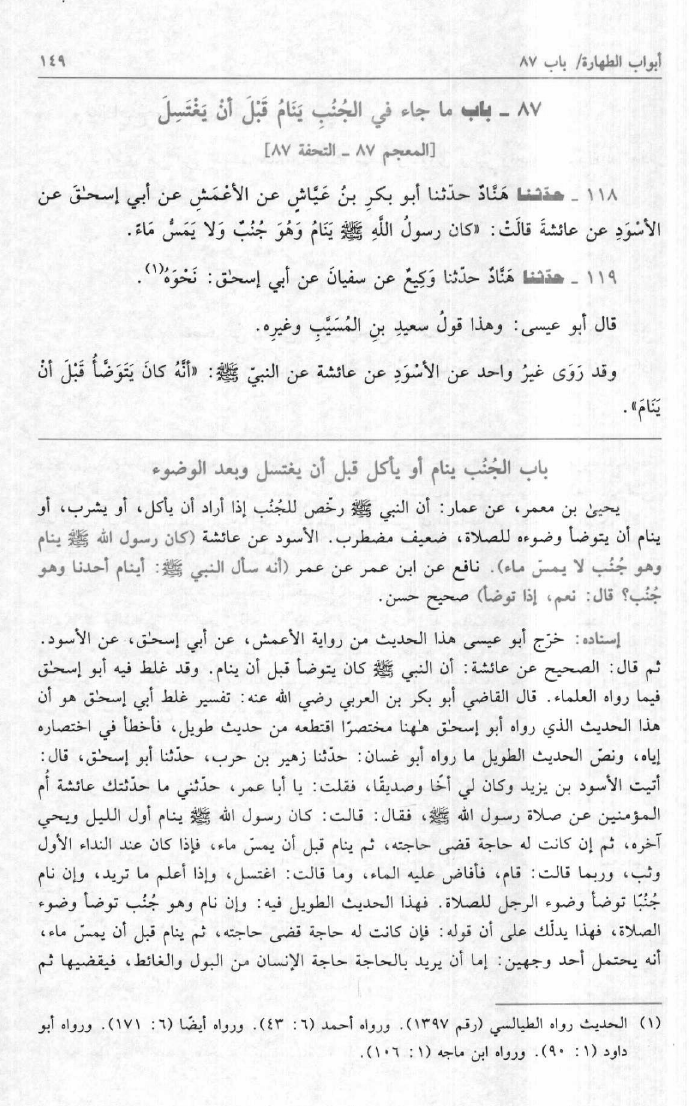 أبواب الطهارة/ باب ٨٧
١٤٩
٨٧ ـ باب ما جاء في الجُنُبِ يَنَامُ قَبْلَ أنْ يَغْتَسِلَ
[المعجم ٨٧ ـ التحفة ٨٧]
١١٨ ـ حدّثنا هَنَّادٌ حدّثنا أبو بكرِ بنُ عَيَّاشٍ عن الأعْمَشِ عن أبي إسحـٰقَ عن
الأسْوَدِ عن عائشةَ قالَتْ: «كان رسولُ اللَّهِ ﷺ يَنَامُ وَهُوَ جُنُبٌ وَلا يَمَسُّ مَاءً.
١١٩ ـ حدّثنا هَنَّادٌ حدّثنا وَكِيعٌ عن سفيانَ عن أبي إسحـٰق: نَحْوَهُ(١).
قال أبو عيسى: وهذا قولُ سعيدِ بنِ المُسَيَّبِ وغيرِه.
وقد رَوَى غيرُ واحد عن الأسْوَدِ عن عائشة عن النبيّ ﷺ: «أنَّهُ كانَ يَتَوَضَّأُ قَبْلَ أنْ
يَنَامَ».
باب الجُنُب ينام أو يأكل قبل أن يغتسل وبعد الوضوء
يحيىٰ بن معمر، عن عمار: أن النبي ﷺ رخّص للجُنُب إذا أراد أن يأكل، أو يشرب، أو
ينام أن يتوضأ وضوءه للصلاة، ضعيف مضطرب. الأسود عن عائشة (كان رسول الله ﷺ ينام
وهو جُنُب لا يمسّ ماء). نافع عن ابن عمر عن عمر (أنه سأل النبي ﷺ: أينام أحدنا وهو
جُنُب؟ قال: نعم، إذا توضأ) صحيح حسن.
إسناده: خرّج أبو عيسى هذا الحديث من رواية الأعمش، عن أبي إسحـٰق، عن الأسود.
ثم قال: الصحيح عن عائشة: أن النبي ﷺ كان يتوضأ قبل أن ينام. وقد غلط فيه أبو إسحـٰق
فيما رواه العلماء. قال القاضي أبو بكر بن العربي رضي الله عنه: تفسير غلط أبي إسحـٰق هو أن
هذا الحديث الذي رواه أبو إسحـٰق هـٰهنا مختصرًا اقتطعه من حديث طويل، فأخطأ في اختصاره
إياه، ونصّ الحديث الطويل ما رواه أبو غسان: حدّثنا زهير بن حرب، حدّثنا أبو إسحـٰق، قال:
أتيت الأسود بن يزيد وكان لي أخًا وصديقًا، فقلت: يا أبا عمر، حدّثني ما حدّثتك عائشة أُم
المؤمنين عن صلاة رسول الله ﷺ، فقال: قالت: كان رسول الله ﷺ ينام أول الليل ويحي
آخره، ثم إن كانت له حاجة قضى حاجته، ثم ينام قبل أن يمسّ ماء، فإذا كان عند النداء الأول
وثب، وربما قالت: قام، فأفاض عليه الماء، وما قالت: اغتسل، وإذا أعلم ما تريد، وإن نام
جُنُبًا توضأ وضوء الرجل للصلاة. فهذا الحديث الطويل فيه: وإن نام وهو جُنُب توضأ وضوء
الصلاة، فهذا يدلّك على أن قوله: فإن كانت له حاجة قضى حاجته، ثم ينام قبل أن يمسّ ماء،
أنه يحتمل أحد وجهين: إما أن يريد بالحاجة حاجة الإنسان من البول والغائط، فيقضيها ثم
(١) الحديث رواه الطيالسي (رقم ١٣٩٧). ورواه أحمد (٦: ٤٣). ورواه أيضًا (٦: ١٧١). ورواه أبو
داود (١: ٩٠). ورواه ابن ماجه (١: ١٠٦).